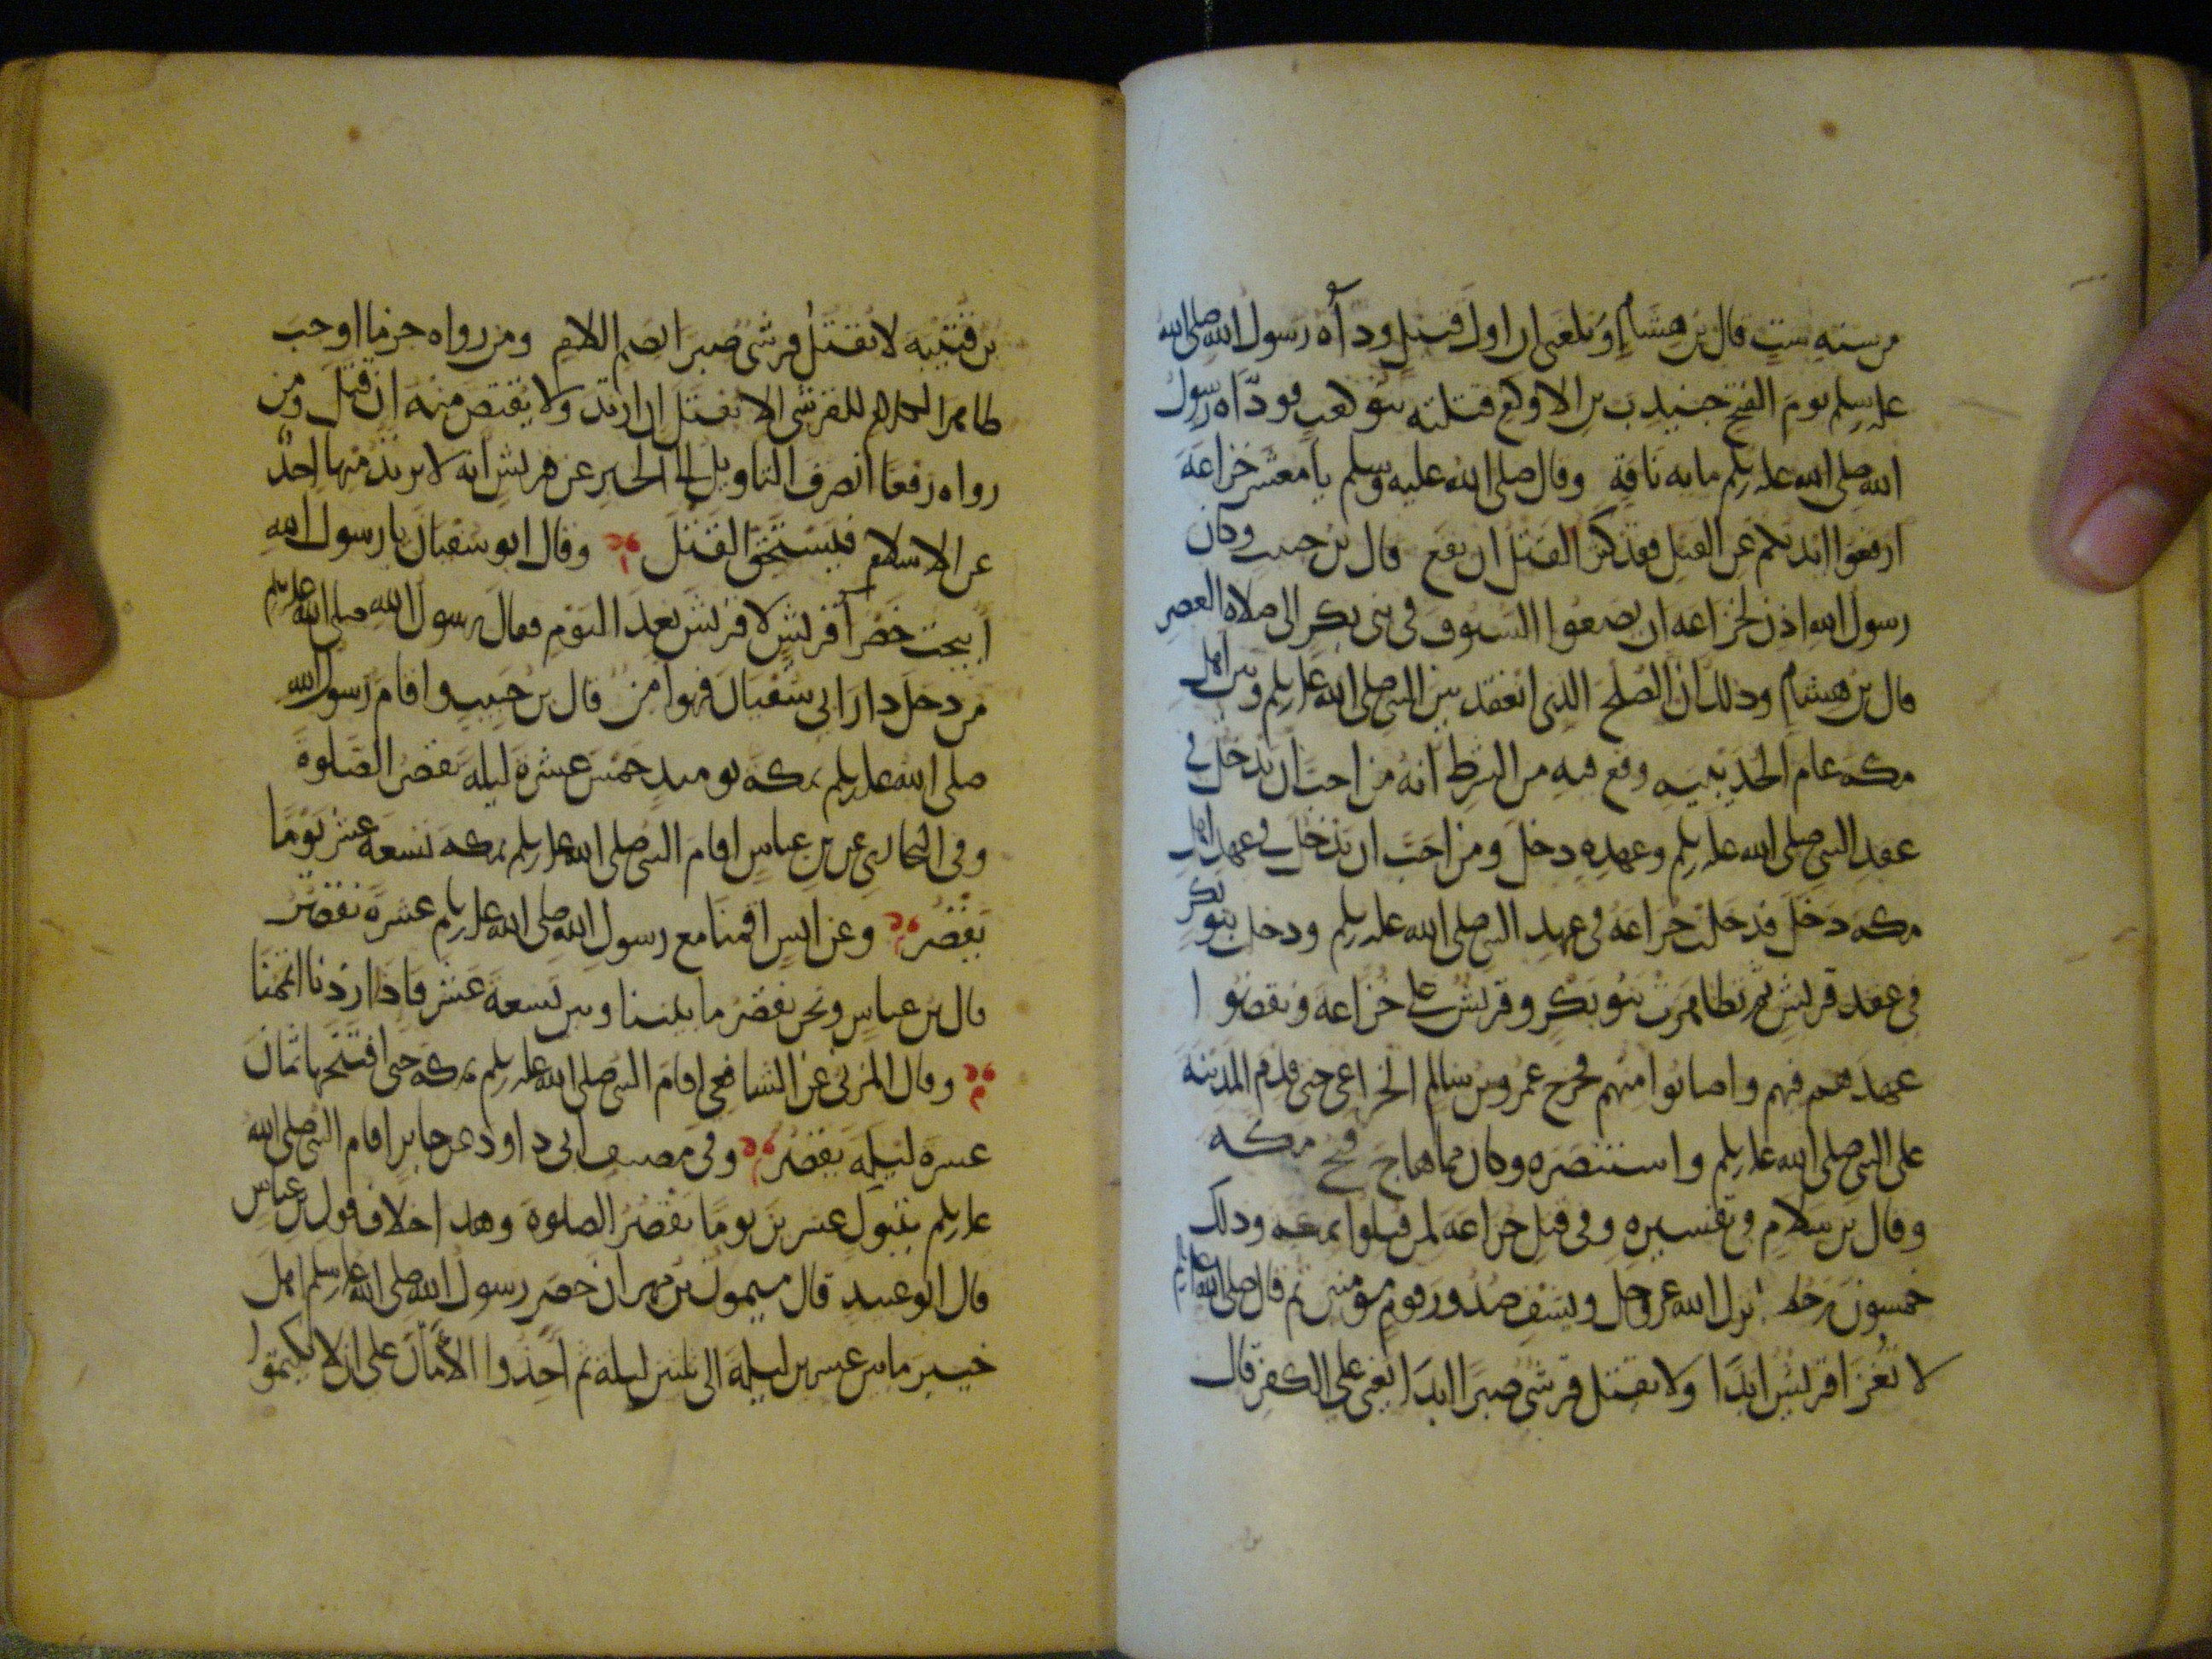 من سنه ست قال بن هشام وبلغني ان اول قتيل وداه رسول الله صلى الله
عليه وسلم يوم الفتح جنيدب بن الاكوع قتلته بنو كعب فوداه رسول
الله صلى الله عليه وسلم بمايه ناقة وقال صلى الله عليه وسلم يا معشر خزاعة
ارفعوا ايديكم عن القتل فقد كثر القتل ان يقع قال بن حبيب وكان
رسول الله اذن لخزاعه ان يضعوا السيوف في بني بكر الى صلاه العصر
قال بن هشام وذلك ان الصلح الذى انعقد بين النبي صلى الله عليه وسلم وبين اهل
مكه عام الحديبيه وقع فيه من الشرط انه من احب ان يدخل في
عقد النبي صلى الله عليه وسلم وعهده دخل ومن احب ان يدخل في عهد اهل
مكه دخل فدخلت خزاعه في عهد النبي صلى الله عليه وسلم ودخل بنو بكر
في عقد قريش ثم تظاهرت بنو بكر وقريش على خزاعه ونقضوا
عهدهم فيهم واصابوا منهم فخرج عمرو بن سالم الخزاعي حتى قدم المدينة
على النبي صلى الله عليه وسلم واستنصره وكان مما هاج فتح مكه
وقال بن سلام في تفسيره وفي قتل خزاعة لمن قتلوا بمكه وذلك
خمسون رجلا انزل الله عز وجل ويشف صدور قوم مومنين ثم قال صلى الله عليه وسلم
لا تغزا قريش ابدا ولا يقتل قرشي صبرا ابدا يعني على الكفر قال
بن قتيبه لا يقتل قرشي صبرا بضم اللام ومن رواه جزما اوجب
ظاهر الكلام للقرشي الا يقتل ان ارتد ولا يقتص منه ان قتل ومن
رواه رفعا انصرف التاويل الى الخبر عن قريش انه لا يرتد منها احد
عن الاسلام فيستحق القتل وقال ابو سفيان يا رسول الله
ابيحت خضرا قريش لا قريش بعد اليوم فقال رسول الله صلى الله عليه وسلم
من دخل دار ابي سفيان فهو امن قال بن حبيب واقام رسول الله
صلى الله عليه وسلم بمكه يوميد خمس عشرة ليله يقصر الصلوة
وفي البخاري عن بن عباس اقام النبي صلى الله عليه وسلم بمكه تسعة عشر يوما
يقصر وعن انس اقمنا مع رسول الله صلى الله عليه وسلم عشرة نقصر
قال بن عباس ونحن نقصر ما بيننا وبين تسعة عشر فاذا زدنا اتممنا
وقال المزني عن الشافعي اقام النبي صلى الله عليه وسلم بمكه حتى افتتحها ثمان
عشرة ليله يقصر وفي مصنف ابي داود عن جابر اقام النبي صلى الله
عليه وسلم بتبوك عشرين يوما يقصر الصلوة وهذا خلاف قول بن عباس
قال ابو عبيد قال ميمون بن مهران حصر رسول الله صلى الله عليه وسلم اهل
خيبر ما بين عشرين ليله الى ثلثين ليلة ثم اخذوا الامان على ان لا يكتموا